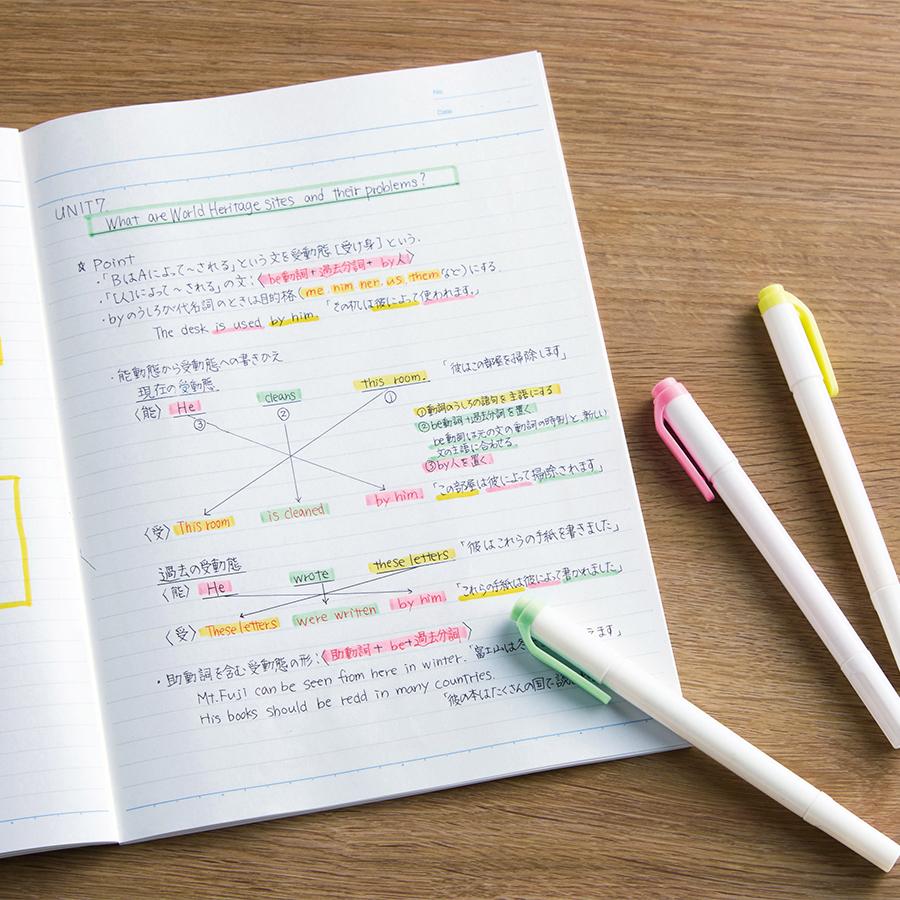 No.
Date
UNIT7
What are World Heritage sites and their problems?
☆ Point
・「BはAによって〜される」という文を受動態[受け身]という.
・「[人]によって〜される」の文:〈be動詞+過去分詞+by人〉
・byのうしろが代名詞のときは目的格(me, him, her, us, themなど)にする
The desk is used by him. 「その机は彼によって使われます。」
・能動態から受動態への書きかえ
現在の受動態
「彼はこの部屋を掃除します」
〈能〉 He cleans this room.
③ ② ①
①動詞のうしろの語句を主語にする
②be動詞+過去分詞を置く
be動詞は元の文の動詞の時制と、新しい
文の主語に合わせる
③by人を置く
〈受〉 This room is cleaned by him 「この部屋は彼によって掃除されます」
過去の受動態
〈能〉 He wrote these letters 「彼はこれらの手紙を書きました」
〈受〉 These letters were written by him 「これらの手紙は彼によって書かれました」
・助動詞を含む受動態の形:〈助動詞+be+過去分詞〉
Mt.Fuji can be seen from here in winter. 「富士山は えます」
His books should be read in many countries.
「彼の本はたくさんの国で